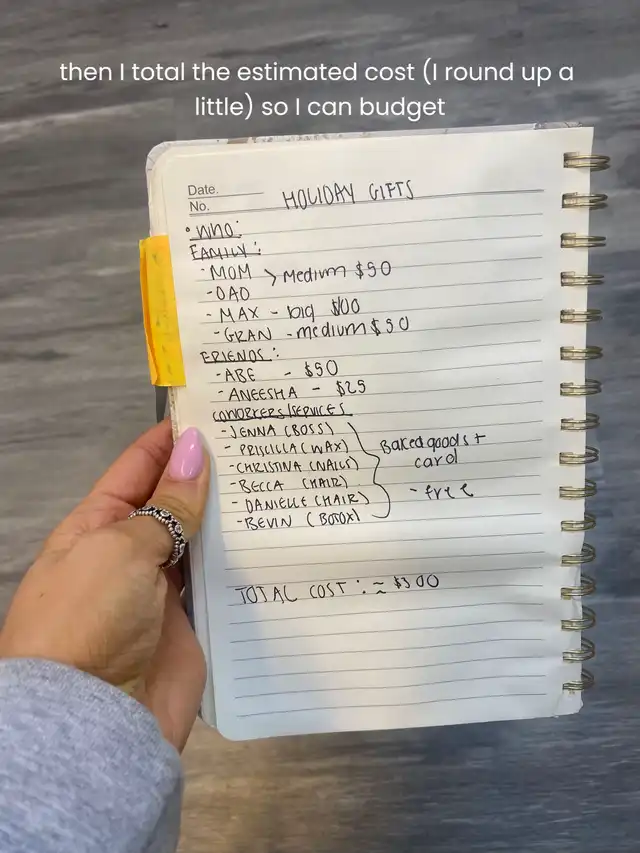 then I total the estimated cost (I round up a
little) so I can budget
Date.
No.
HOLIDAY GIFTS
• WHO:
FAMILY:
- MOM
- DAD
> Medium $50
- MAX - big $100
- GRAN - medium $50
FRIENDS:
- ABE - $50
- ANEESHA - $25
COWORKERS/SERVICES
- JENNA (BOSS)
- PRISCILLA (WAX)
- CHRISTINA (NAILS)
- BECCA (HAIR)
- DANIELLE (HAIR)
- BEVIN (BOTOX)
Baked goods +
card
- free
TOTAL COST: ≈ $300